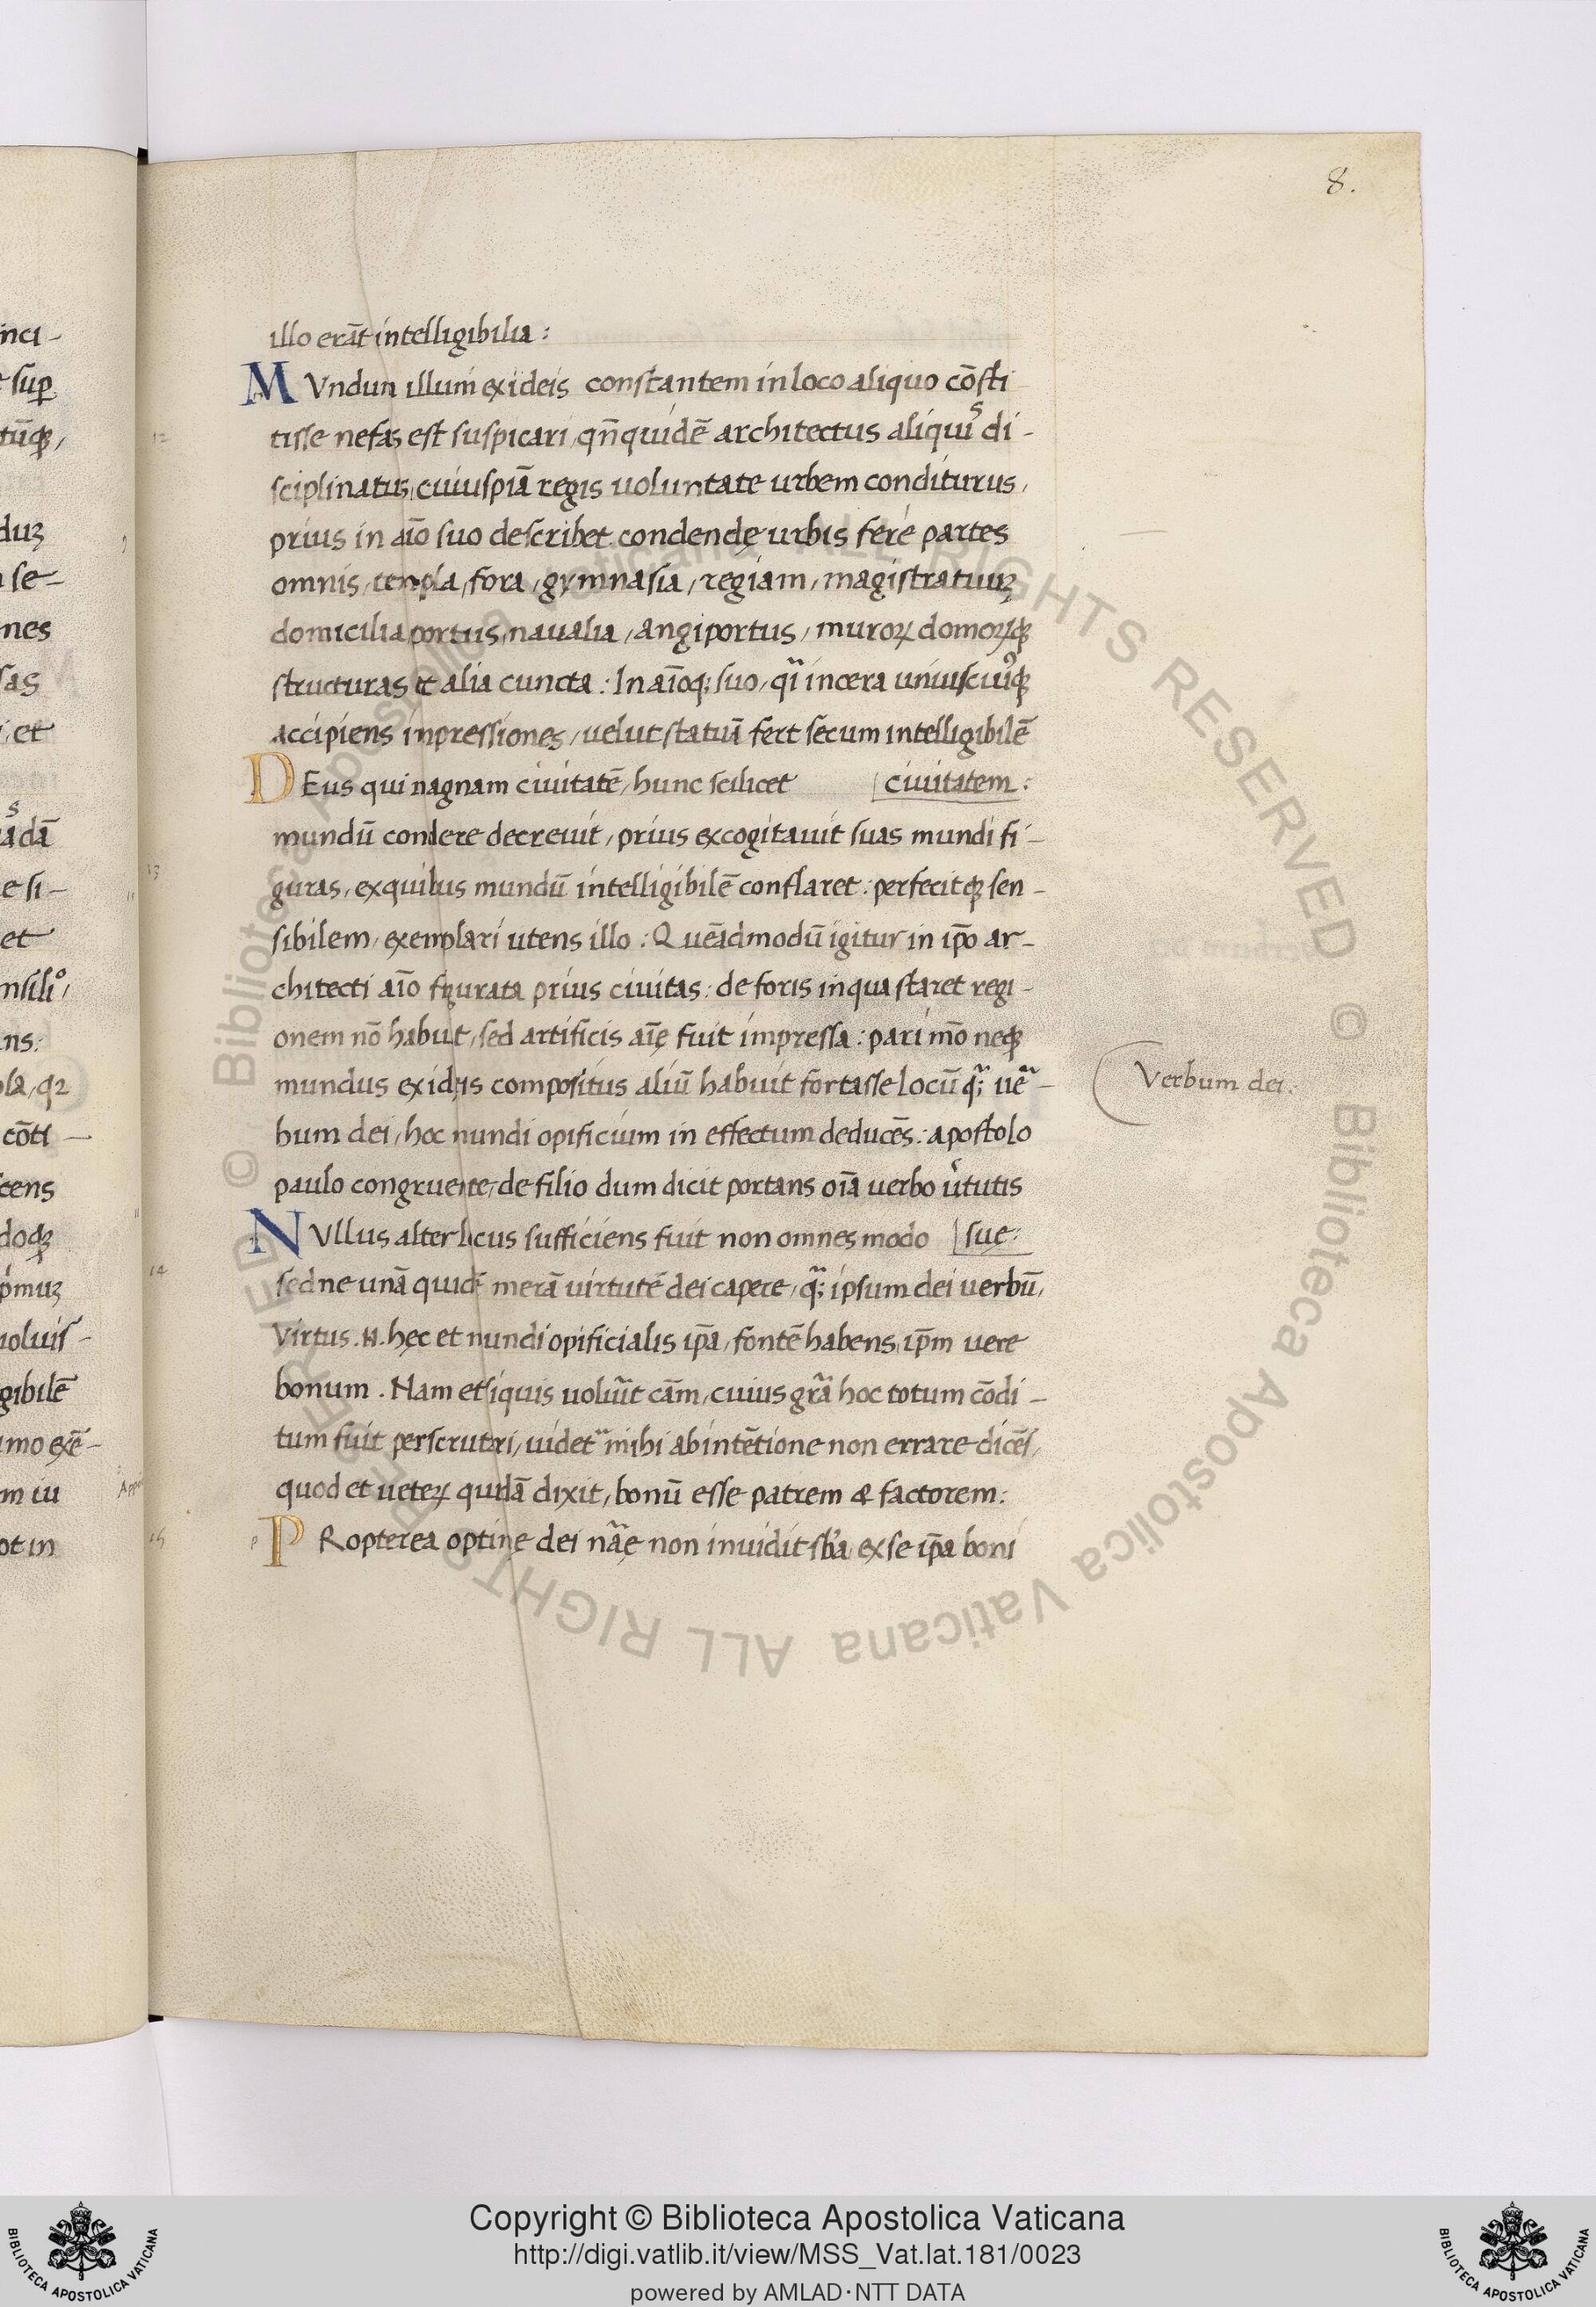 8.
illo erāt intelligibilia:
MVndum illum ex ideis constantem in loco aliquo cōsti
tisse nefas est suspicari, qn̄quidē architectus aliquis di-
sciplinatus, cuiuspiā regis uoluntate urbem conditurus,
prius in aīo suo describet condendę urbis fere partes
omnis, templa, fora, gymnasia, regiam, magistratuuꝫ
domicilia, portus, naualia, angiportus, muroꝝ domoꝝqꝫ
structuras et alia cuncta: In aīoqꝫ suo, qī in cera uniuscuiꝰqꝫ
accipiens impressiones, uelut statuā fert secum intelligibilē
DEus qui magnam ciuitatē, hunc scilicet [ciuitatem:
mundū condere decreuit, prius excogitauit suas mundi fi-
guras, ex quibus mundū intelligibilē conflaret: perfecitqꝫ sen-
sibilem, exemplari utens illo: Quēadmodū igitur in ip̄o ar-
chitecti aīo figurata prius ciuitas: de foris in qua staret regi-
onem nō habuit, sed artificis aīę fuit impressa: pari mō neqꝫ
mundus ex ideis compositus aliū habuit fortasse locū qᷓꝫ ueᷓ-
bum dei, hoc mundi opificium in effectum deducēs: apostolo
paulo congruente, de filio dum dicit portans oīa uerbo u̾tutis
NVllus alter locus sufficiens fuit non omnes modo [suę:
sed ne unā quidē merā uirtutē dei capere, qᷓꝫ ipsum dei uerbū,
Virtus .N. hęc et mundi opificialis ip̄a, fontē habens, ip̄m uere
bonum. Nam et siquis uoluīt cām, cuius grā hoc totum cōdi-
tum fuit perscrutari, uidetᷓ mihi ab intētione non errare dicēs,
quod et ueteꝝ quidā dixit, bonū esse patrem & factorem:
PRopterea optimę dei nāę non inuidit sb̄a, ex se ip̄a boni
Verbum dei:
Copyright © Biblioteca Apostolica Vaticana
http://digi.vatlib.it/view/MSS_Vat.lat.181/0023
powered by AMLAD·NTT DATA